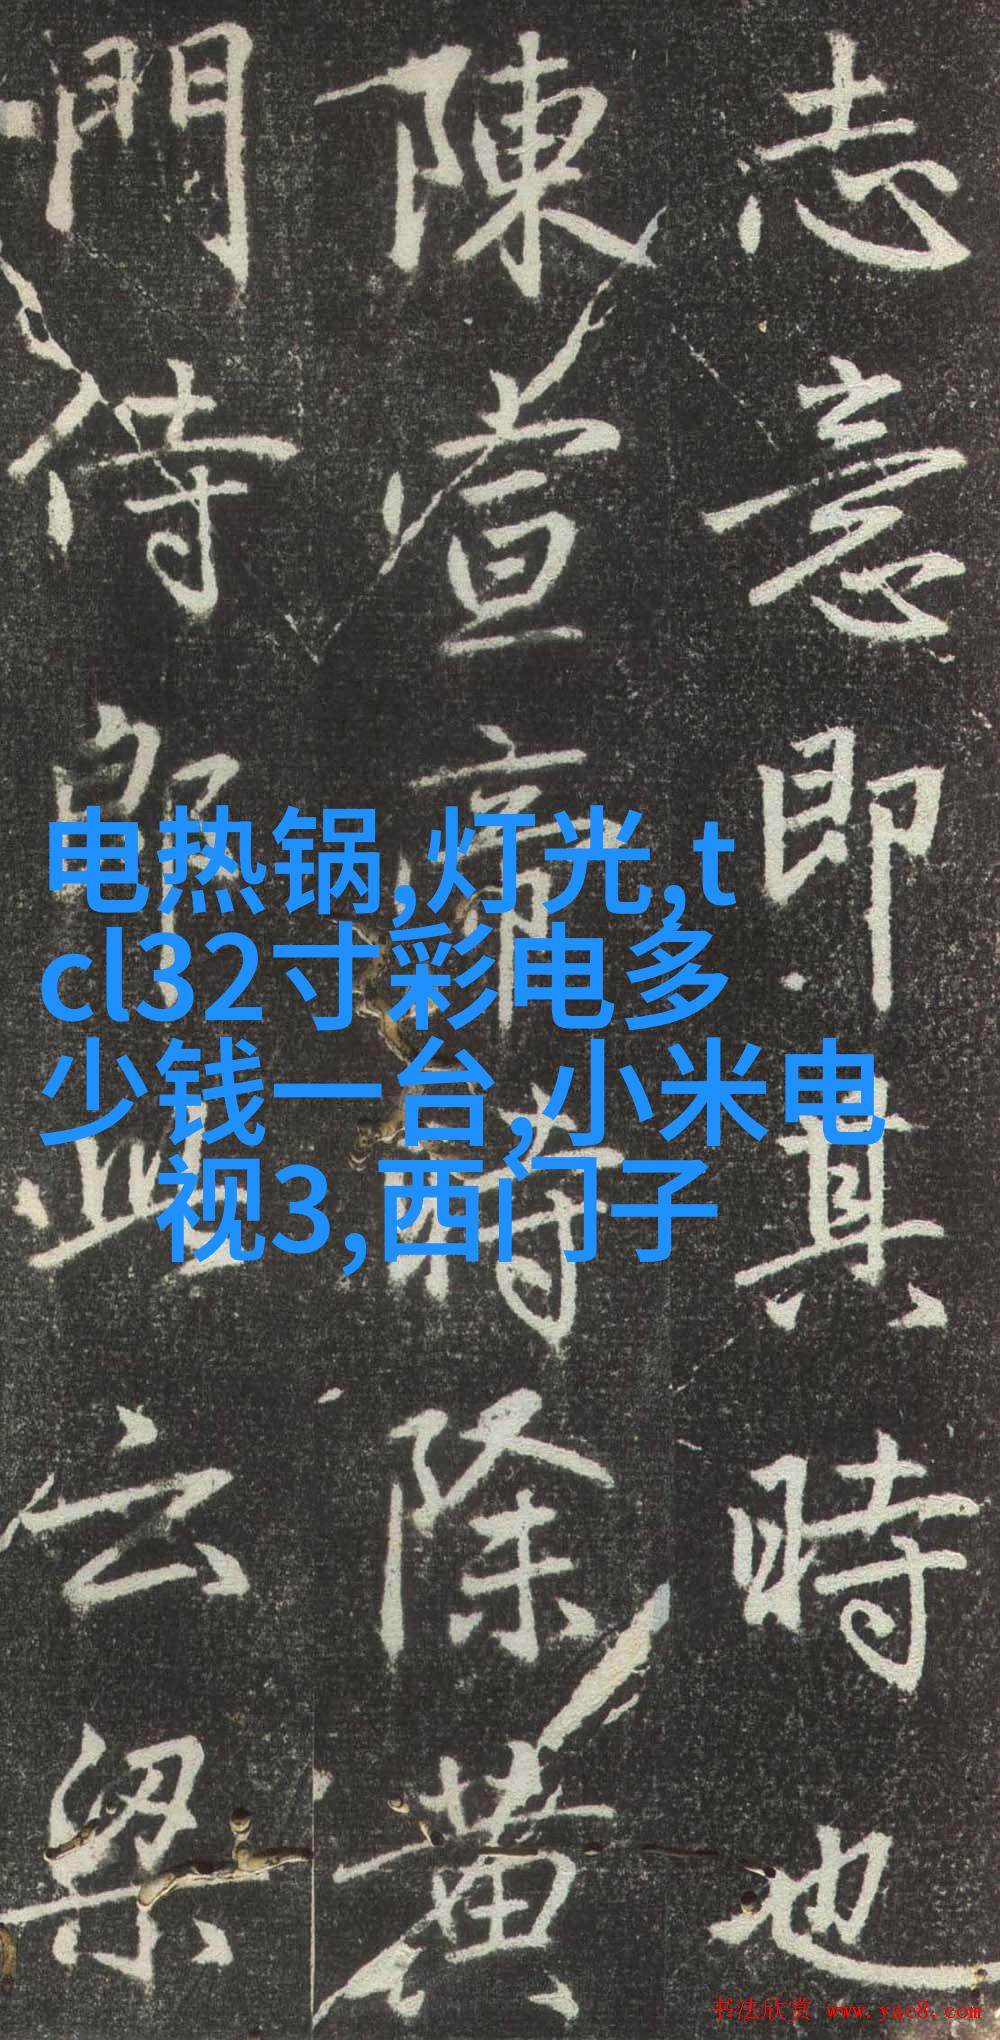 志意即其時也
陳宣帝時除黄
門侍郎此云梁
电热锅,灯光,t
cl32寸彩电多
少钱一台,小米电
视3,西门子
书法欣赏 www.yac8.com